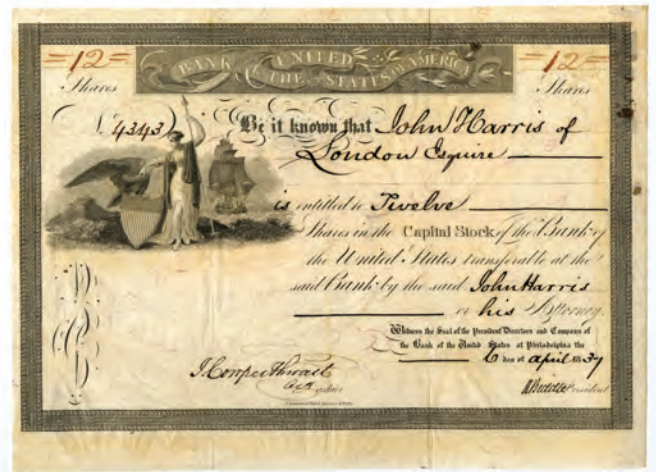 =12= =12=
BANK OF THE UNITED STATES OF AMERICA
Shares Shares
4343 Be it known that John Harris of
London Esquire
is entitled to Twelve
Shares in the Capital Stock of the Bank of
the United States transferable at the
said Bank by the said John Harris
or his Attorney.
Witness the Seal of the President Directors and Company of
the Bank of the United States at Philadelphia the
6 day of april 1837
J. Cowperthwait
Act Cashier
N Biddle President